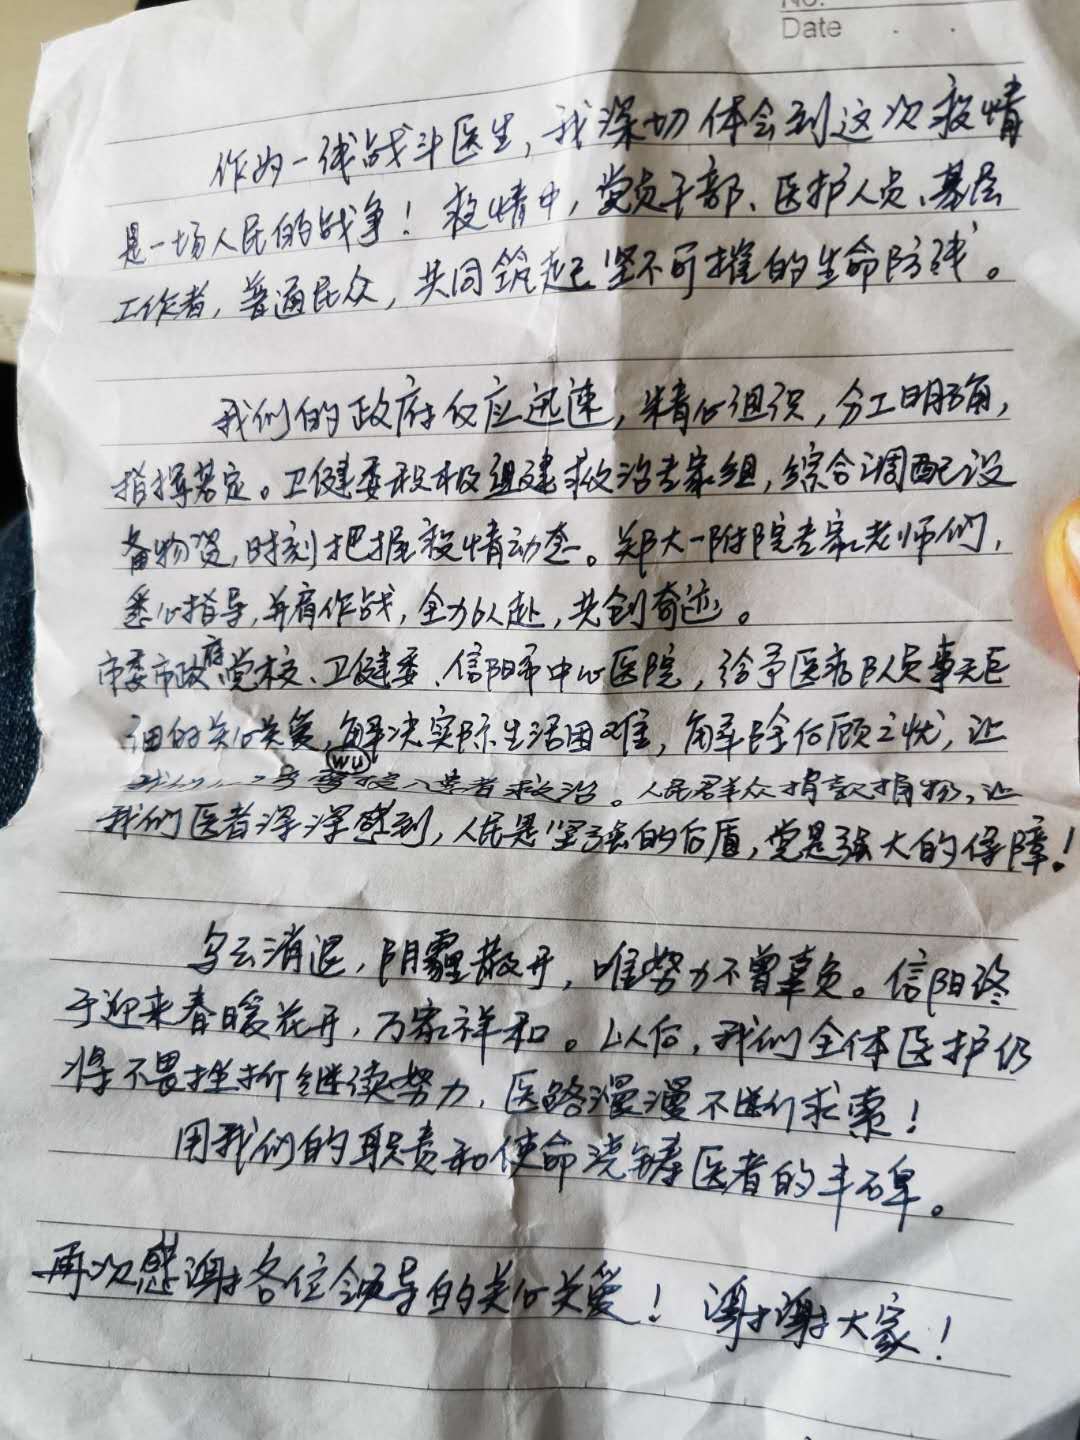 No.
Date
作为一线战斗医生，我深切体会到这次疫情
是一场人民的战争！疫情中，党员干部、医护人员、基层
工作者，普通民众，共同筑起坚不可摧的生命防线。
我们的政府反应迅速，精心组织，分工明确，
指挥若定。卫健委积极组建救治专家组，综合调配设
备物资，时刻把握疫情动态。郑大一附院专家老师们，
悉心指导，并肩作战，全力以赴，共创奇迹。
市委市政府党校、卫健委、信阳市中心医院，给予医疗队员事无巨
细的关心关爱，解决实际生活困难，解除后顾之忧，让
wu
我们 者救治。人民群众捐款捐物，让
我们医者深深感到，人民是坚强的后盾，党是强大的保障！
乌云消退，阴霾散开，唯努力不曾辜负。信阳终
于迎来春暖花开，万家祥和。以后，我们全体医护仍
将不畏挫折继续努力，医路漫漫不断求索！
用我们的职责和使命浇铸医者的丰碑。
再次感谢各位领导的关心关爱！谢谢大家！